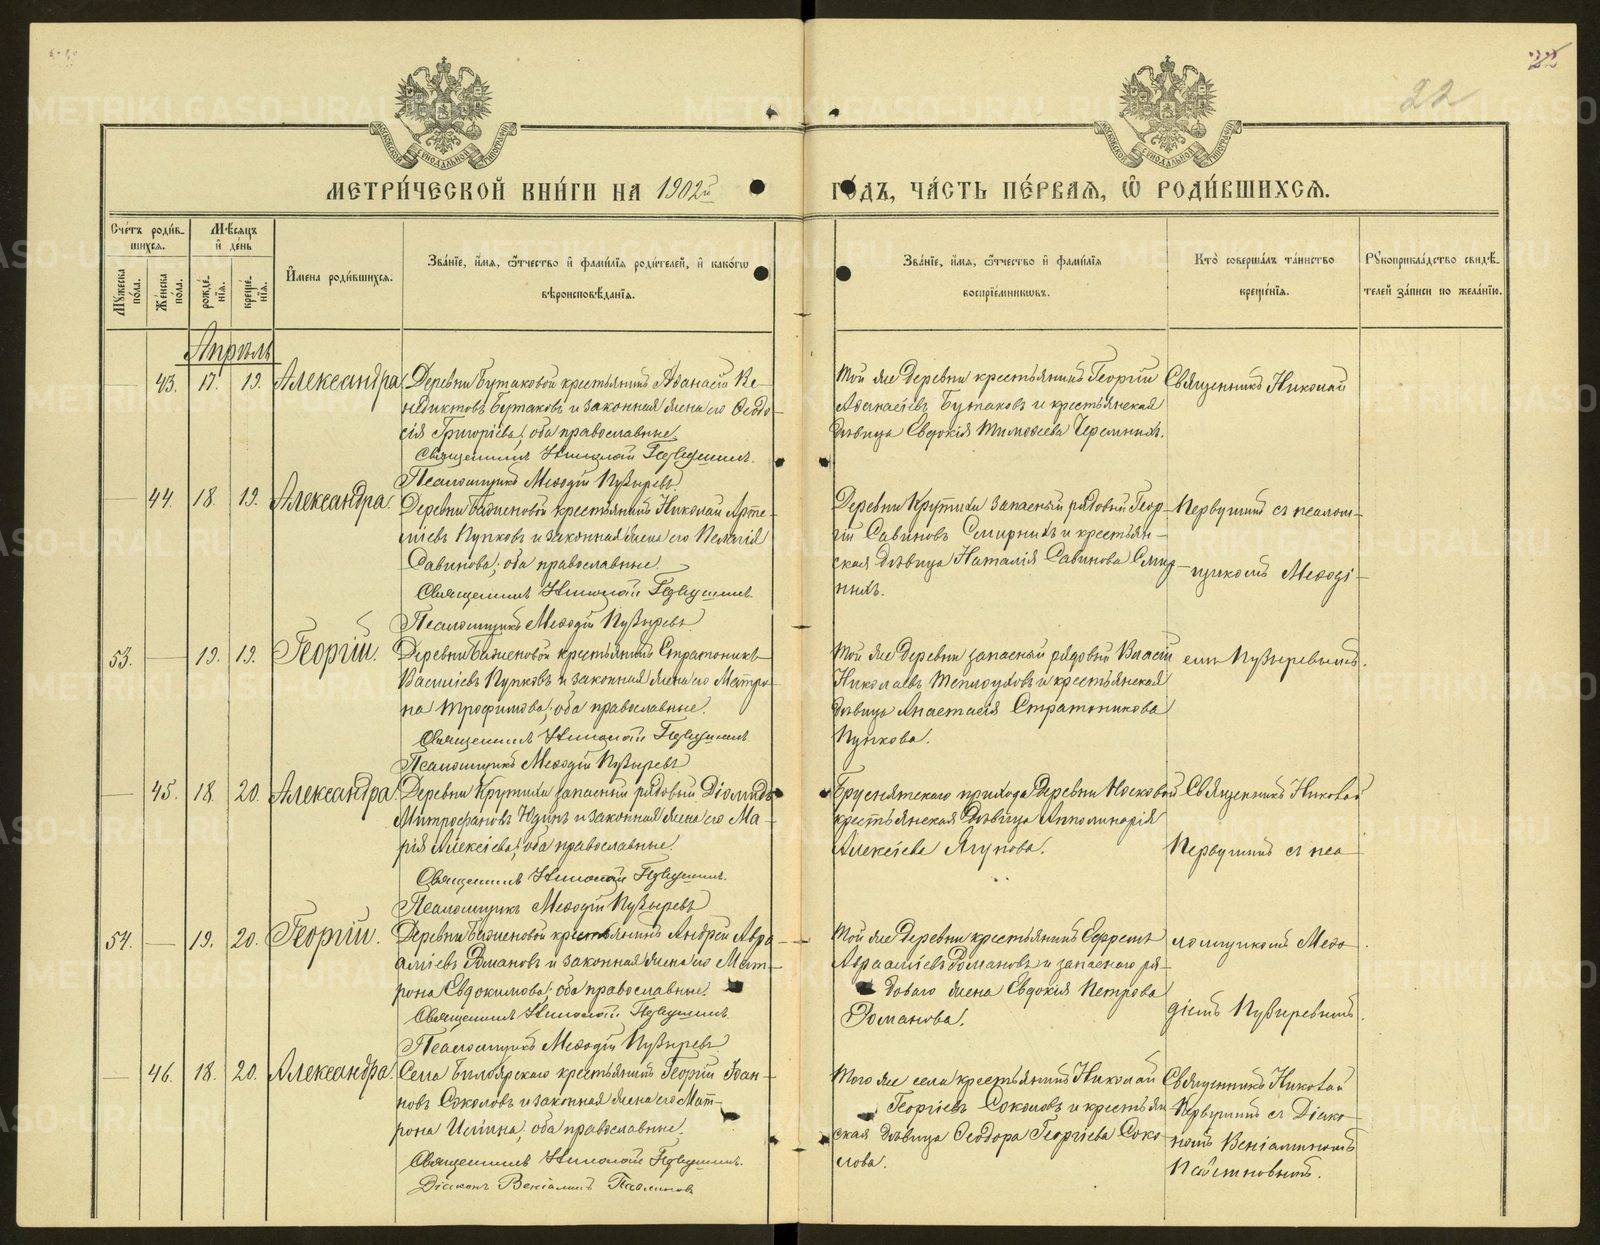 22
МЕТРИ́ЧЕСКОЙ КНИ́ГИ НА 1902й ГО́ДЪ, ЧА́СТЬ ПЕ́РВАѦ, Ѡ҆ РОДИ́ВШИХСѦ.
Сче́тъ роди́в-
шихсѧ.
Мꙋ́жеска по́ла.
Же́нска по́ла.
Мѣ́сѧцъ
и҆ де́нь
рожде́-
нїѧ.
креще́-
нїѧ.
И҆мена роди́вшихсѧ.
Зва́нїе, и҆́мѧ, ѻ҆́тчество и҆ фами́лїѧ роди́телей, и҆ како́гѡ
вѣроисповѣ́данїѧ.
Зва́нїе, и҆́мѧ, ѻ҆́тчество и҆ фами́лїѧ
воспрїе́мникѡвъ.
Кто̀ соверша́лъ та́инство
креще́нїѧ.
Рꙋкоприкла́дство свидѣ́-
телей за́писи по жела́нїю.
Апрѣль
43. 17. 19. Александра
Деревни Бутаковой крестьянинъ Афанасій Ве-
недиктовъ Бутаковъ и законная жена его Ѳеодо-
сія Григоріева, оба православные.
Священникъ Николай Первушинъ.
Псаломщикъ Меѳодій Пузыревъ
Той же деревни крестьянинъ Георгій
Афанасіевъ Бутаковъ и крестьянская
дѣвица Евдокія Тимоѳеева Черемныхъ.
Священникъ Николай
44. 18. 19. Александра.
Деревни Баженовой крестьянинъ Николай Арте-
міевъ Пупковъ и законная жена его Пелагія
Савинова, оба православные
Священникъ Николай Первушинъ.
Псаломщикъ Меѳодій Пузыревъ
Деревни Крутихи запасный рядовый Геор-
гій Савиновъ Смирныхъ и крестьян-
ская дѣвица Наталія Савинова Смир-
ныхъ.
Первушинъ съ псалом-
щикомъ Меѳоді-
53. 19. 19. Георгій.
Деревни Баженовой крестьянинъ Стратоникъ
Василіевъ Пупковъ и законная жена его Матро-
на Трофимова, оба православные.
Священникъ Николай Первушинъ
Псаломщикъ Меѳодій Пузыревъ
Той же деревни запасный рядовый Власій
Николаевъ Теплоуховъ и крестьянская
дѣвица Анастасія Стратоникова
Пупкова.
емъ Пузыревымъ.
45. 18. 20. Александра.
Деревни Крутихи запасный рядовый Діомидъ
Митрофановъ Юдинъ и законная жена его Ма-
рія Алексіева, оба православные.
Священникъ Николай Первушинъ.
Псаломщикъ Меѳодій Пузыревъ
Бруснятскаго прихода Деревни Носковой
крестьянская дѣвица Апполинарія
Алексіева Ягупова.
Священникъ Николай
Первушинъ съ пса-
54. 19. 20. Георгій.
Деревни Баженовой крестьянинъ Андрей Авра-
аміевъ Романовъ и законная жена его Мат-
рона Евдокимова, оба православные.
Священникъ Николай Первушинъ.
Псаломщикъ Меѳодій Пузыревъ
Той же Деревни крестьянинъ Ефремъ
Авраамiевъ Романовъ и запаснаго ря-
доваго жена Евдокія Петрова
Романова.
ломщикомъ Меѳо-
діемъ Пузыревымъ.
46. 18. 20. Александра.
Села Бѣлоярскаго крестьянинъ Георгій Іоан-
новъ Соколовъ и законная жена его Мат-
рона Ильина, оба православные.
Священникъ Николай Первушинъ.
Діаконъ Веніаминъ
Того же села крестьянинъ Николай
Георгіевъ Соколовъ и крестьян-
ская дѣвица Ѳеодора Георгіева Соко-
лова.
Священникъ Николай
Первушинъ съ Діако-
номъ Веніаминомъ